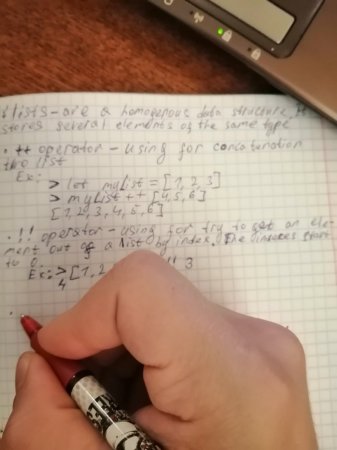 lists - are a homogenous data structure. It
stores several elements of the same type
. ++ operator - using for concatenation
two list
Ex:
> let myList = [1, 2, 3]
> myList ++ [4, 5, 6]
[1, 2, 3, 4, 5, 6]
. !! operator - using for try to get an ele-
ment out of a list by index. The indexes start
to 0.
Ex: > [1, 2 !! 3
4
.